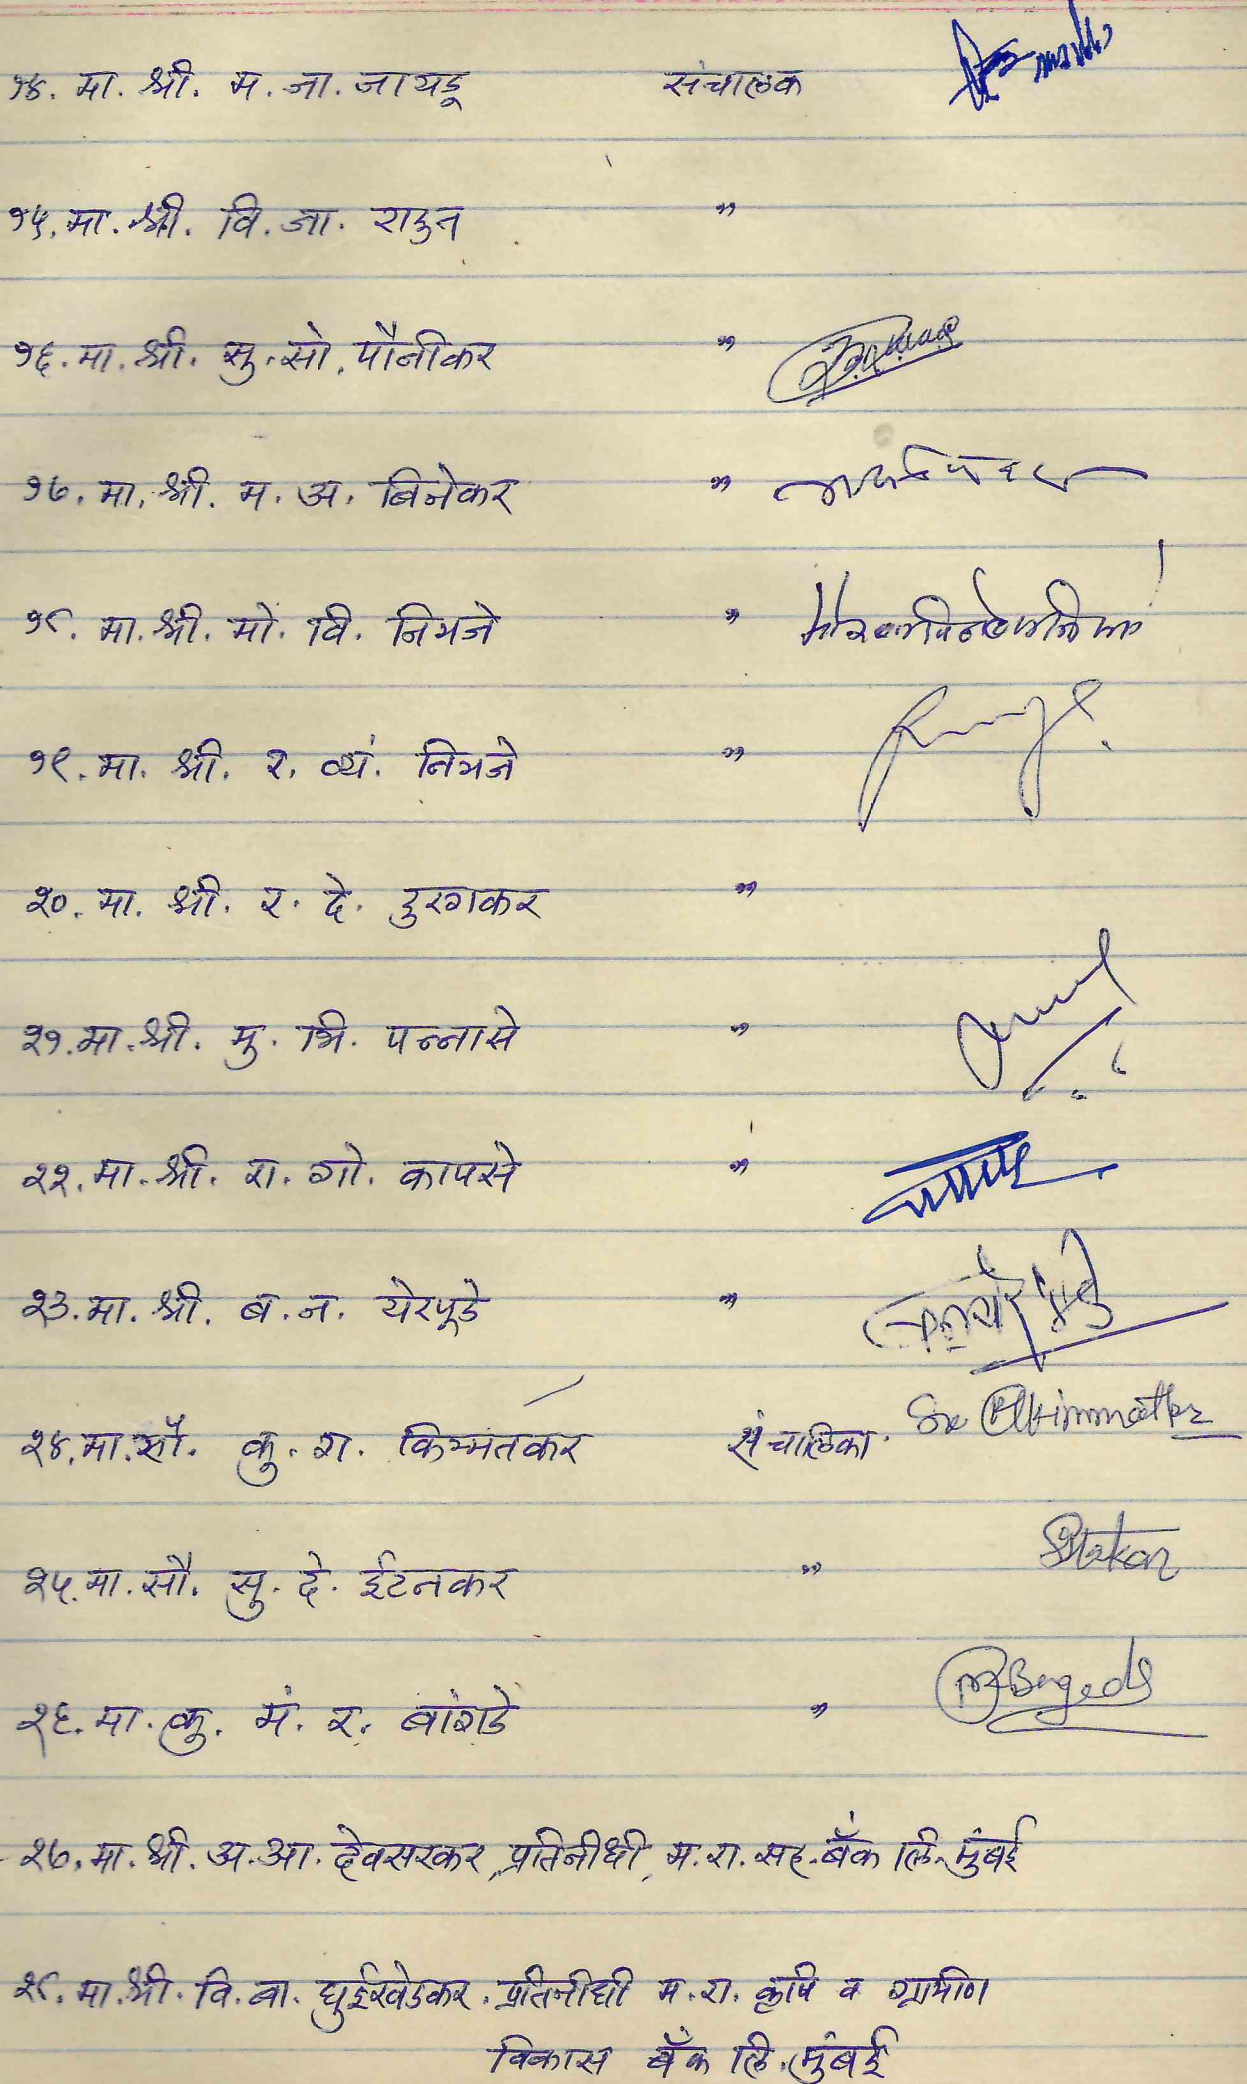 १४. मा. श्री. म. जा. जायडू संचालक
१५. मा. श्री. वि. जा. राऊत "
१६. मा. श्री. सु. सो. पौनीकर "
१७. मा. श्री. म. अ. बिनेकर "
१८. मा. श्री. मो. वि. निमजे "
१९. मा. श्री. र. व्यं. निमजे "
२०. मा. श्री. र. दे. दुरुगकर "
२१. मा. श्री. मु. भि. पन्नासे "
२२. मा. श्री. रा. गो. कापसे "
२३. मा. श्री. ब. न. येरपूडे "
२४. मा. सौ. कु. रा. किम्मतकर संचालिका.
२५. मा. सौ. सु. दे. ईटनकर "
२६. मा. कु. मं. र. बांगडे "
२७. मा. श्री. अ. आ. देवसरकर, प्रतिनीधी, म. रा. सह. बँक लि. मुंबई
२८. मा. श्री. वि. बा. घुईखेडकर. प्रतिनीधी म. रा. कृषि व ग्रामीण
विकास बँक लि. मुंबई